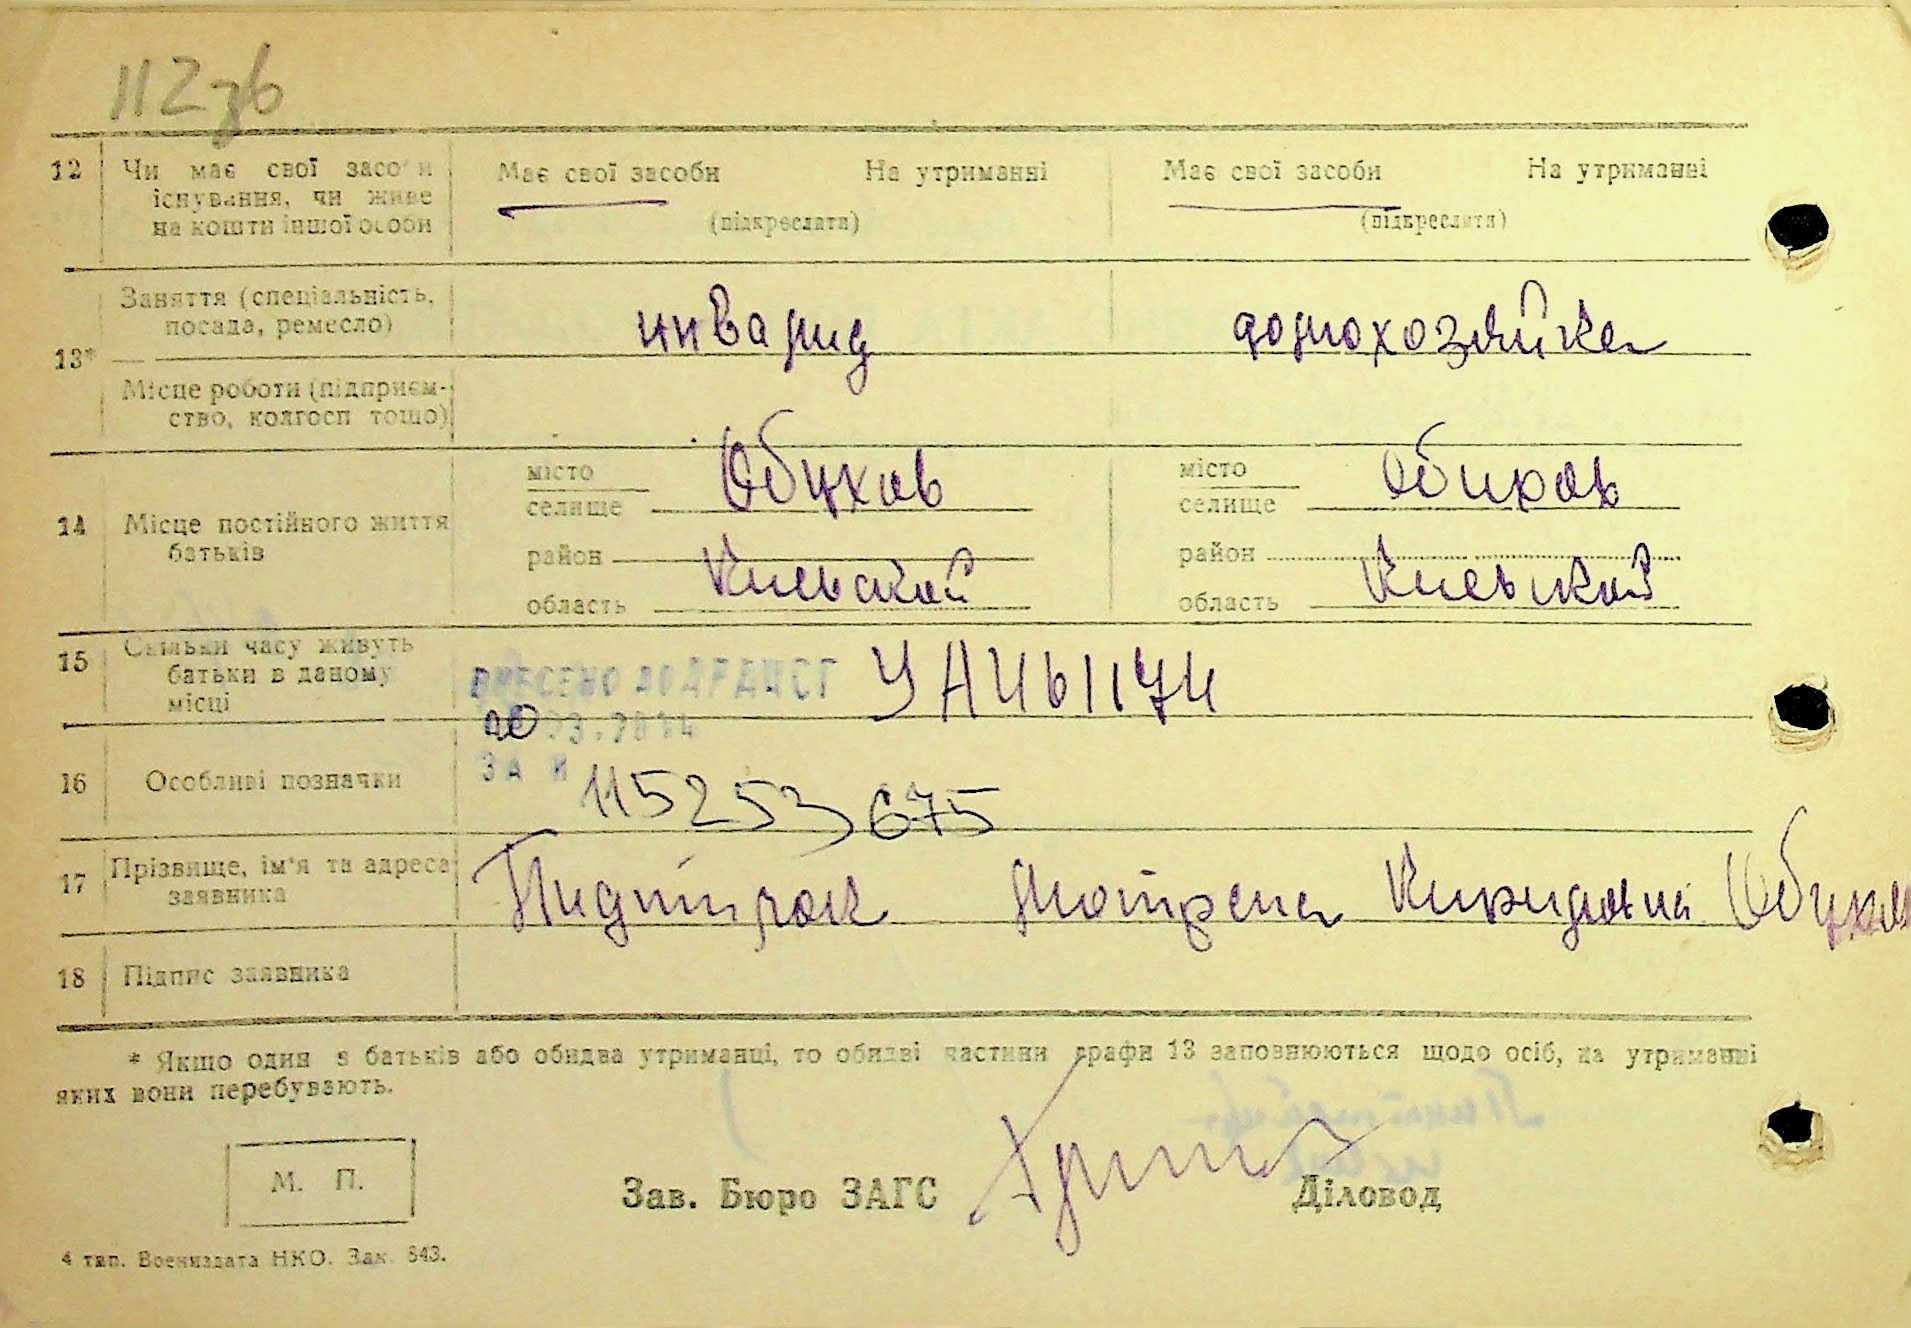 112зв
12 Чи має свої засоби Має свої засоби На утриманні Має свої засоби На утриманні
існування, чи живе
на кошти іншої особи (підкреслити) (підкреслити)
Заняття (спеціальність,
посада, ремесло) инвалид домохозяйка
13*
Місце роботи (підприєм-
ство, колгосп тощо)
місто Обухов місто Обухов
селище селище
14 Місце постійного життя
батьків район район
область Киевской область Киевской
15 Скільки часу живуть
батьки в даному
місці
ВНЕСЕНО ДО ДРАЦСГ УЛЧЬ1174
20 03.2014
16 Особливі позначки ЗА № 115253675
17 Прізвище, ім'я та адреса
заявника Мотрена Кириловна Обухов
18 Підпис заявника
* Якщо один з батьків або обидва утриманці, то обидві частини графи 13 заповнюються щодо осіб, на утриманні
яких вони перебувають.
М. П.
Зав. Бюро ЗАГС Діловод
4 тип. Воениздата НКО. Зак. 843.